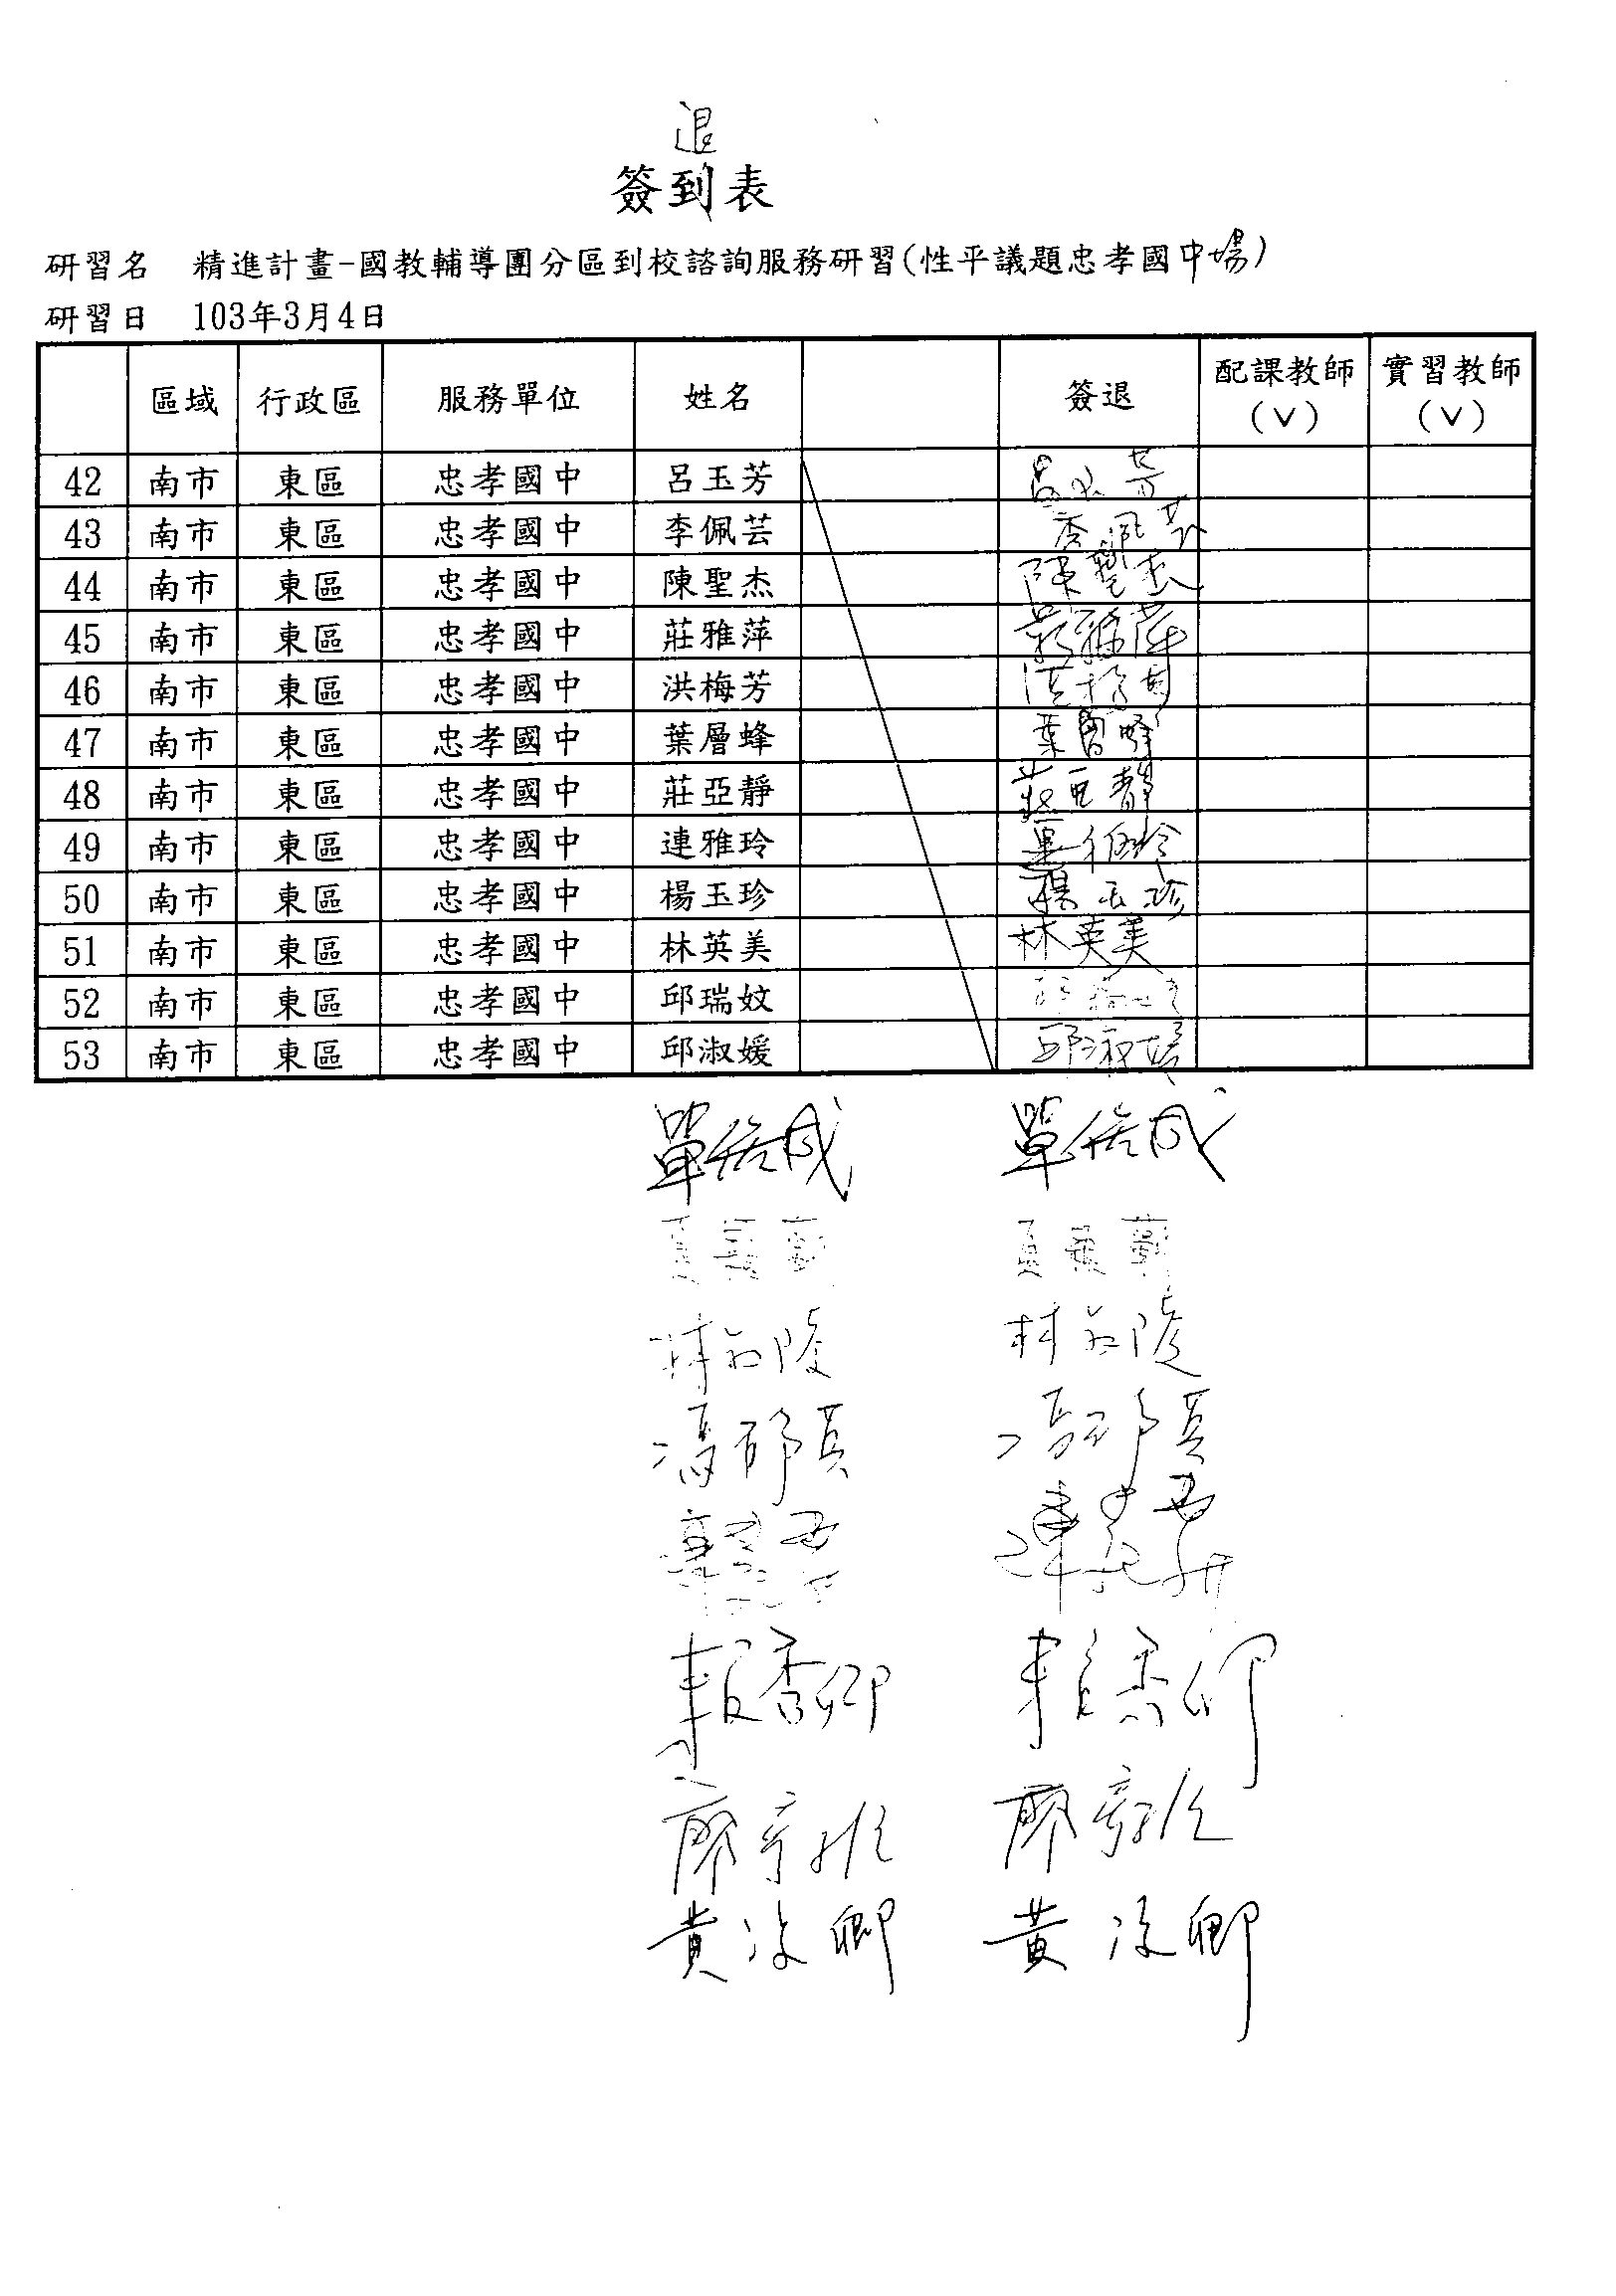 退
簽到表
研習名 精進計畫-國教輔導團分區到校諮詢服務研習(性平議題忠孝國中場)
研習日 103年3月4日
區域 行政區 服務單位 姓名 簽退 配課教師(V) 實習教師(V)
42 南市 東區 忠孝國中 呂玉芳 呂玉芳
43 南市 東區 忠孝國中 李佩芸 李佩芸
44 南市 東區 忠孝國中 陳聖杰 陳聖杰
45 南市 東區 忠孝國中 莊雅萍 莊雅萍
46 南市 東區 忠孝國中 洪梅芳 洪梅芳
47 南市 東區 忠孝國中 葉層蜂 葉層蜂
48 南市 東區 忠孝國中 莊亞靜 莊亞靜
49 南市 東區 忠孝國中 連雅玲 連雅玲
50 南市 東區 忠孝國中 楊玉珍 楊玉珍
51 南市 東區 忠孝國中 林英美 林英美
52 南市 東區 忠孝國中 邱瑞妏
53 南市 東區 忠孝國中 邱淑媛 邱淑媛
成 成
林 陵 林 陵
馮 馮
賴香卿 賴香卿
廖 廖
黃 卿 黃 卿